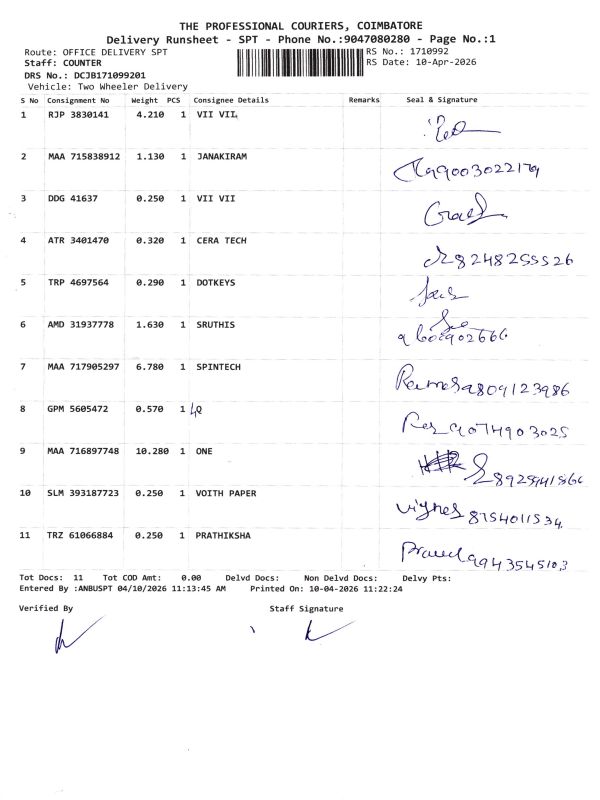 THE PROFESSIONAL COURIERS, COIMBATORE
Delivery Runsheet - SPT - Phone No.:9047080280 - Page No.:1
Route: OFFICE DELIVERY SPT RS No.: 1710992
Staff: COUNTER RS Date: 10-Apr-2026
DRS No.: DCJB171099201
Vehicle: Two Wheeler Delivery
S No Consignment No Weight PCS Consignee Details Remarks Seal & Signature
1 RJP 3830141 4.210 1 VII VII
2 MAA 715838912 1.130 1 JANAKIRAM 9003022179
3 DDG 41637 0.250 1 VII VII
4 ATR 3401470 0.320 1 CERA TECH 8248255526
5 TRP 4697564 0.290 1 DOTKEYS
6 AMD 31937778 1.630 1 SRUTHIS
7 MAA 717905297 6.780 1 SPINTECH 9809123986
8 GPM 5605472 0.570 1 9074903025
9 MAA 716897748 10.280 1 ONE
10 SLM 393187723 0.250 1 VOITH PAPER Vignes 8754011534
11 TRZ 61066884 0.250 1 PRATHIKSHA 9943545103
Tot Docs: 11 Tot COD Amt: 0.00 Delvd Docs: Non Delvd Docs: Delvy Pts:
Entered By :ANBUSPT 04/10/2026 11:13:45 AM Printed On: 10-04-2026 11:22:24
Verified By Staff Signature